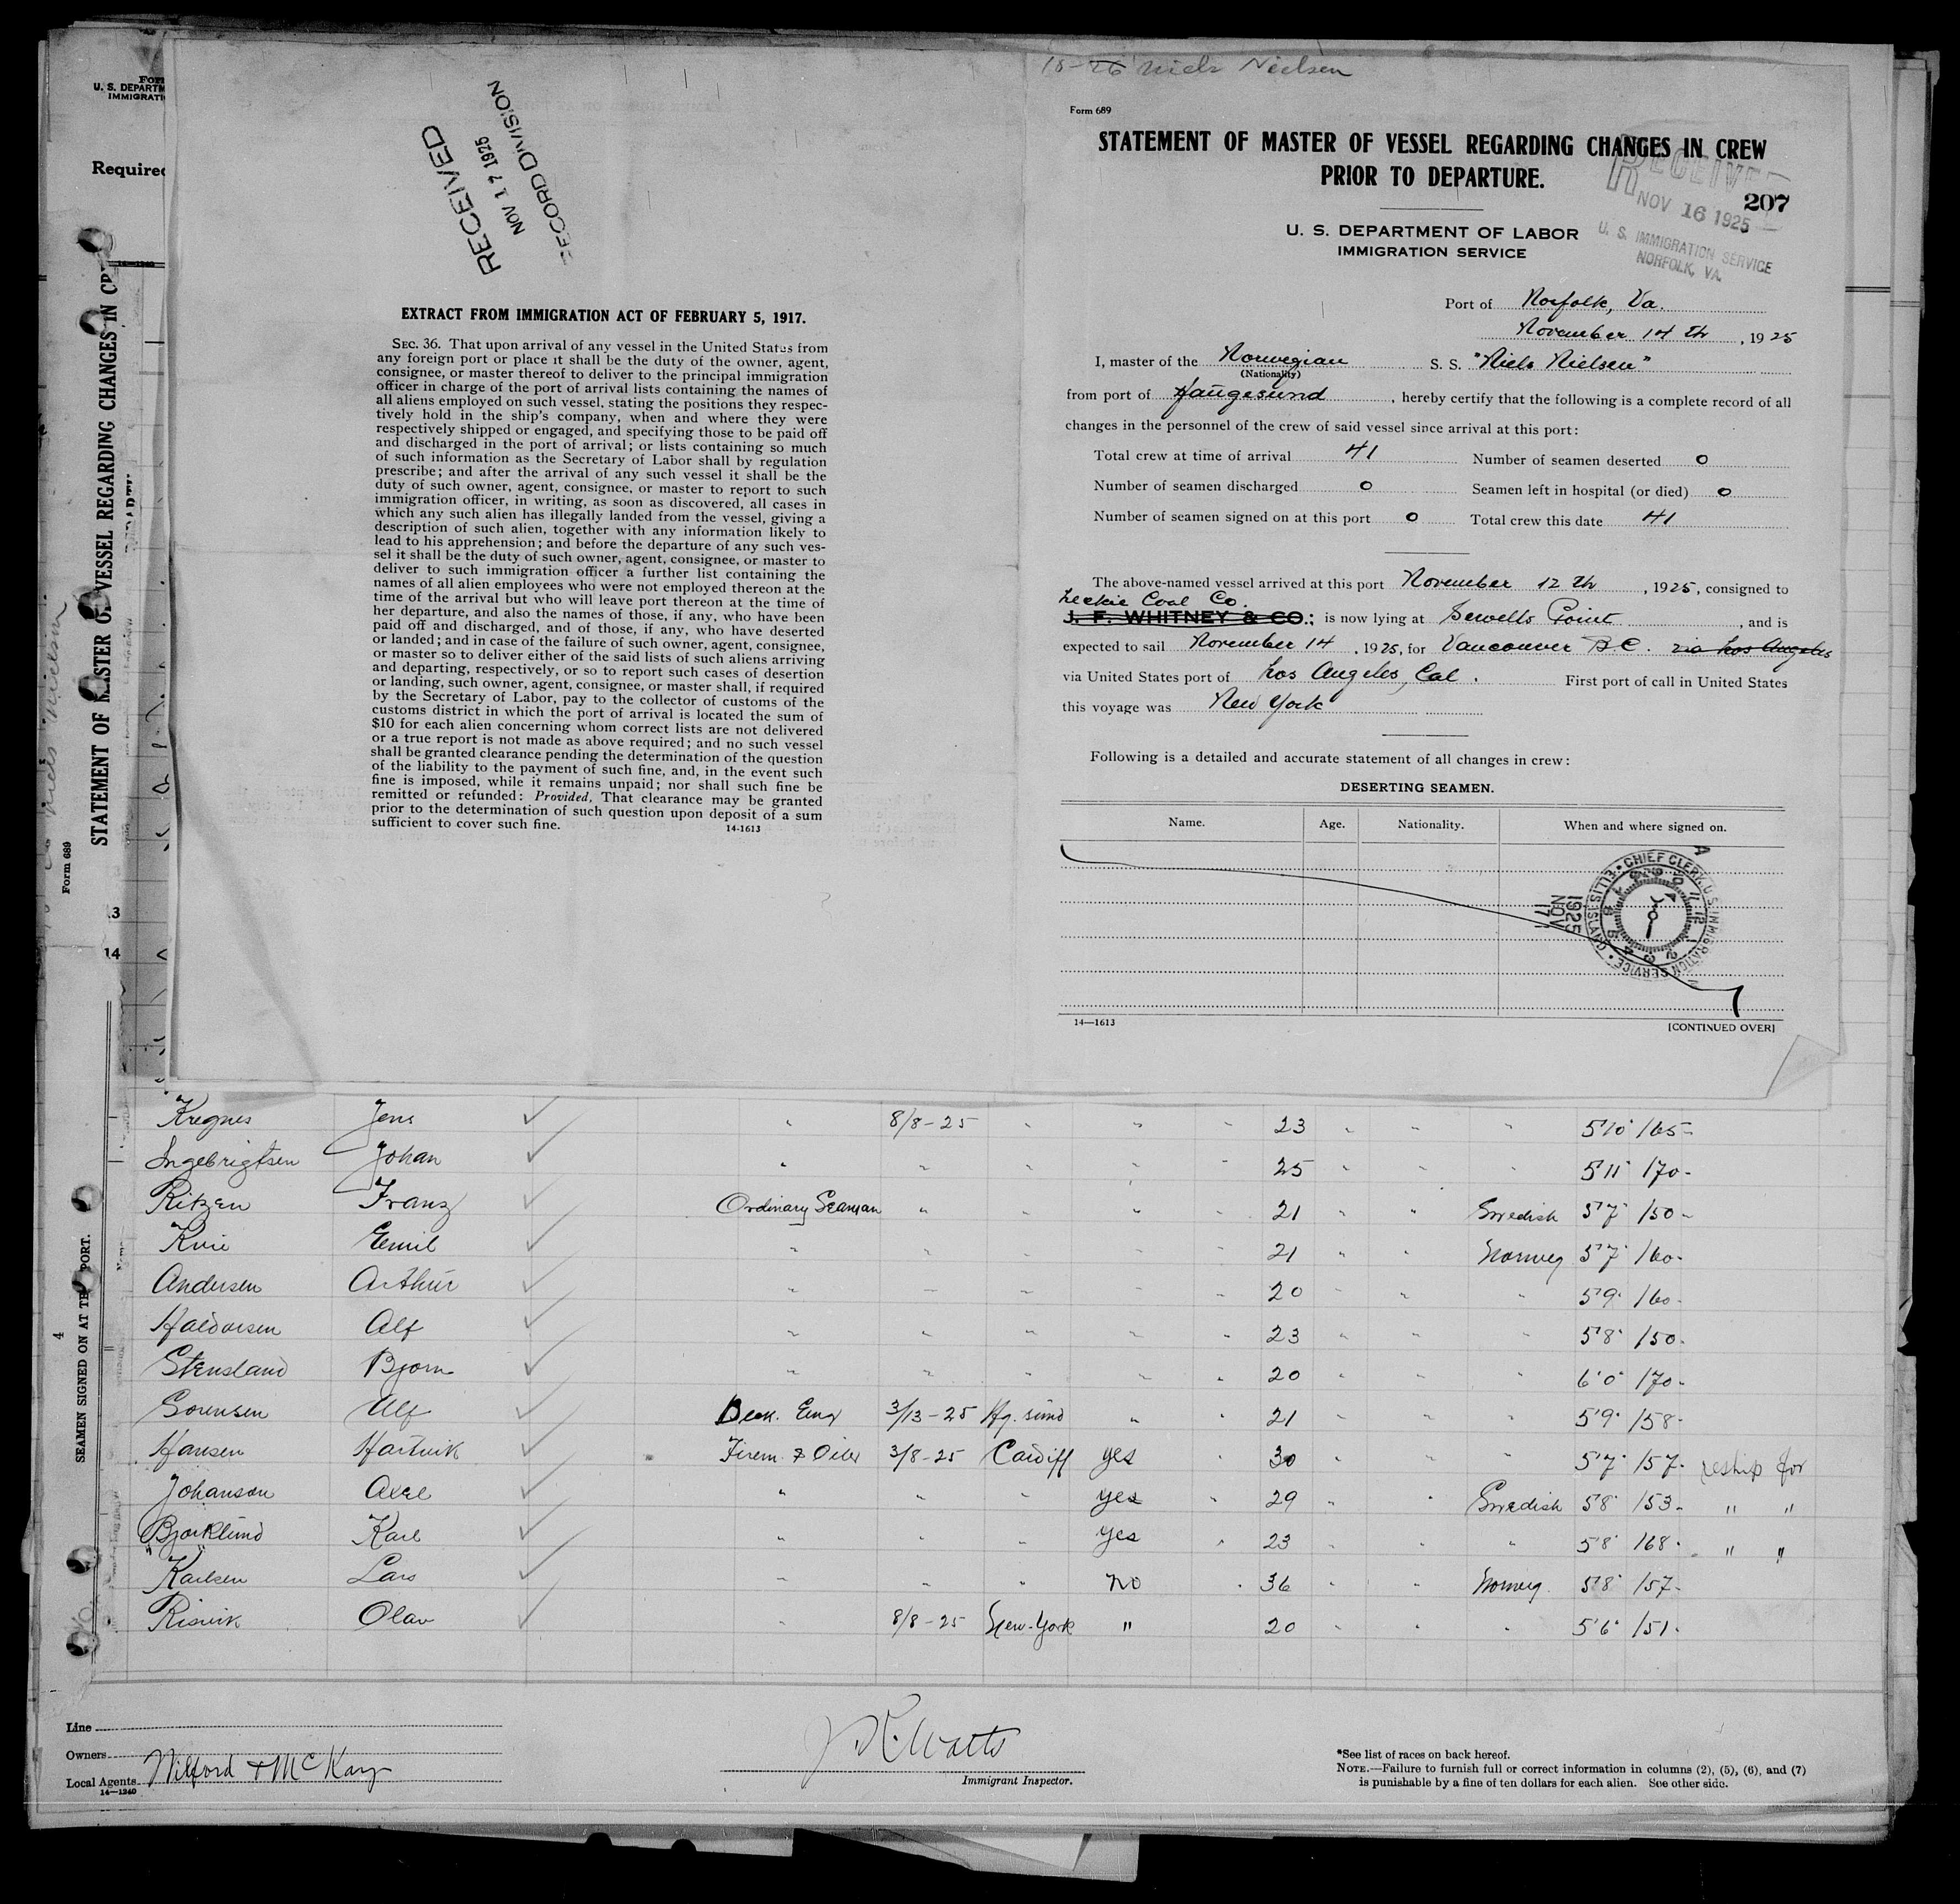 Form
U. S. DEPARTM
IMMIGRATI
Required
STATEMENT OF MASTER OF VESSEL REGARDING CHANGES IN CR
Form 689
13
14
4
SEAMEN SIGNED ON AT THIS PORT.
RECEIVED
NOV 17 1925
RECORD DIVISION
EXTRACT FROM IMMIGRATION ACT OF FEBRUARY 5, 1917.
SEC. 36. That upon arrival of any vessel in the United States from
any foreign port or place it shall be the duty of the owner, agent,
consignee, or master thereof to deliver to the principal immigration
officer in charge of the port of arrival lists containing the names of
all aliens employed on such vessel, stating the positions they respec-
tively hold in the ship's company, when and where they were
respectively shipped or engaged, and specifying those to be paid off
and discharged in the port of arrival; or lists containing so much
of such information as the Secretary of Labor shall by regulation
prescribe; and after the arrival of any such vessel it shall be the
duty of such owner, agent, consignee, or master to report to such
immigration officer, in writing, as soon as discovered, all cases in
which any such alien has illegally landed from the vessel, giving a
description of such alien, together with any information likely to
lead to his apprehension; and before the departure of any such ves-
sel it shall be the duty of such owner, agent, consignee, or master to
deliver to such immigration officer a further list containing the
names of all alien employees who were not employed thereon at the
time of the arrival but who will leave port thereon at the time of
her departure, and also the names of those, if any, who have been
paid off and discharged, and of those, if any, who have deserted
or landed; and in case of the failure of such owner, agent, consignee,
or master so to deliver either of the said lists of such aliens arriving
and departing, respectively, or so to report such cases of desertion
or landing, such owner, agent, consignee, or master shall, if required
by the Secretary of Labor, pay to the collector of customs of the
customs district in which the port of arrival is located the sum of
$10 for each alien concerning whom correct lists are not delivered
or a true report is not made as above required; and no such vessel
shall be granted clearance pending the determination of the question
of the liability to the payment of such fine, and, in the event such
fine is imposed, while it remains unpaid; nor shall such fine be
remitted or refunded: Provided, That clearance may be granted
prior to the determination of such question upon deposit of a sum
sufficient to cover such fine. 14-1613
Niels Nielsen
Form 689
STATEMENT OF MASTER OF VESSEL REGARDING CHANGES IN CREW
PRIOR TO DEPARTURE.
RECEIVED
NOV 16 1925
U. S. IMMIGRATION SERVICE
NORFOLK, VA.
207
U. S. DEPARTMENT OF LABOR
IMMIGRATION SERVICE
Port of Norfolk, Va.
November 14 th, 1925
I, master of the Norwegian S. S. "Niels Nielsen"
(Nationality)
from port of Haugesund, hereby certify that the following is a complete record of all
changes in the personnel of the crew of said vessel since arrival at this port:
Total crew at time of arrival 41 Number of seamen deserted 0
Number of seamen discharged 0 Seamen left in hospital (or died) 0
Number of seamen signed on at this port 0 Total crew this date 41
The above-named vessel arrived at this port November 12 th, 1925, consigned to
Leckie Coal Co.
J. F. WHITNEY & CO.; is now lying at Sewells Point, and is
expected to sail November 14, 1925, for Vancouver B.C. via Los Angeles
via United States port of Los Angeles, Cal. First port of call in United States
this voyage was New York
Following is a detailed and accurate statement of all changes in crew:
DESERTING SEAMEN.
Name. Age. Nationality. When and where signed on.
CHIEF CLERK U.S. IMMIGRATION SERVICE ELLIS ISLAND
1925 NOV 17
14—1613 [CONTINUED OVER]
Kregnes Jens " 8/8-25 " " " 23 " " " 5'10" 165-
Ingebrigtsen Johan " " " " " 25 " " " 5'11" 170-
Ritzen Franz Ordinary Seaman " " " " 21 " " Swedish 5'7" 150-
Kvie Emil " " " " " 21 " " Norweg 5'7" 160-
Andersen Arthur " " " " " 20 " " " 5'9" 160-
Haldorsen Alf " " " " " 23 " " " 5'8" 150-
Stensland Bjorn " " " " " 20 " " " 6'0" 170-
Sorensen Alf Deck. Eng 3/13-25 Hg. sund " " 21 " " " 5'9" 158-
Hansen Hartvik Firem. & Oiler 3/8-25 Cardiff yes " 30 " " " 5'7" 157- reship for
Johanson Axel " " " yes " 29 " " Swedish 5'8" 153- " "
Bjorklund Karl " " " yes " 23 " " " 5'8" 168- " "
Karlsen Lars " " " no " 36 " " Norweg. 5'8" 157-
Risvik Olav " 8/8-25 New-York " 20 " " " 5'6" 151-
Line
Owners
Local Agents Wilford & McKay
14—1240
Watts
Immigrant Inspector.
*See list of races on back hereof.
NOTE.—Failure to furnish full or correct information in columns (2), (5), (6), and (7)
is punishable by a fine of ten dollars for each alien. See other side.